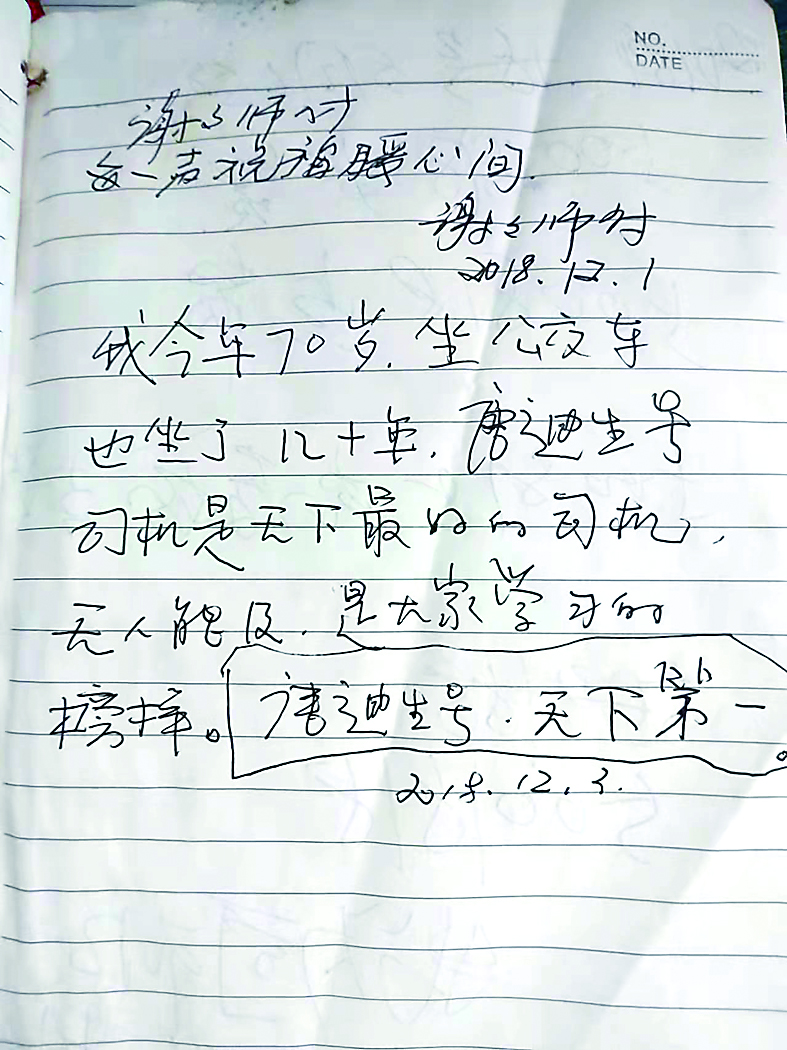 NO.
DATE
谢谢师付
每一声祝福暖心间.
谢谢师付
2018.12.1
我今年70岁.坐公交车
也坐了几十年.唐迪生号
司机是天下最好的司机,
无人能及.是大家学习的
榜样。唐迪生号.天下第一。
2018.12.3.